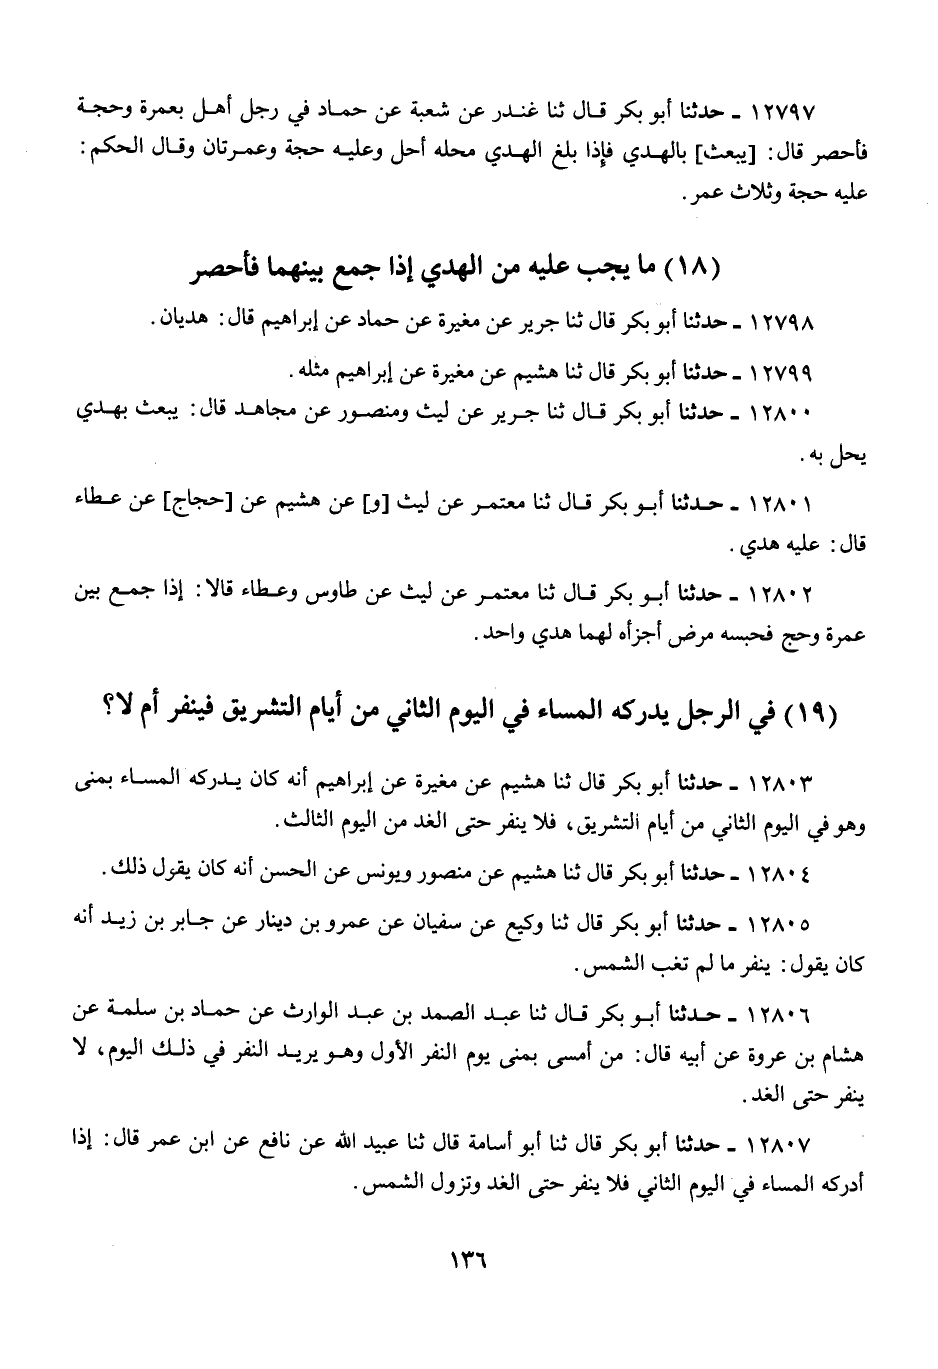 ١٢٧٩٧ - حدثنا أبو بكر قال ثنا غندر عن شعبة عن حماد في رجل أهل بعمرة وحجة
فأحصر قال: [يبعث] بالهدي فإذا بلغ الهدي محله أحل وعليه حجة وعمرتان وقال الحكم:
عليه حجة وثلاث عمر.
(١٨) ما يجب عليه من الهدي إذا جمع بينهما فأحصر
١٢٧٩٨ - حدثنا أبو بكر قال ثنا جرير عن مغيرة عن حماد عن إبراهيم قال: هديان.
١٢٧٩٩ - حدثنا أبو بكر قال ثنا هشيم عن مغيرة عن إبراهيم مثله.
١٢٨٠٠ - حدثنا أبو بكر قال ثنا جرير عن ليث ومنصور عن مجاهد قال: يبعث بهدي
يحل به.
١٢٨٠١ - حدثنا أبو بكر قال ثنا معتمر عن ليث [و] عن هشيم عن [حجاج] عن عطاء
قال: عليه هدي.
١٢٨٠٢ - حدثنا أبو بكر قال ثنا معتمر عن ليث عن طاوس وعطاء قالا: إذا جمع بين
عمرة وحج فحبسه مرض أجزأه لهما هدي واحد.
(١٩) في الرجل يدركه المساء في اليوم الثاني من أيام التشريق فينفر أم لا؟
١٢٨٠٣ - حدثنا أبو بكر قال ثنا هشيم عن مغيرة عن إبراهيم أنه كان يدركه المساء بمنى
وهو في اليوم الثاني من أيام التشريق، فلا ينفر حتى الغد من اليوم الثالث.
١٢٨٠٤ - حدثنا أبو بكر قال ثنا هشيم عن منصور ويونس عن الحسن أنه كان يقول ذلك.
١٢٨٠٥ - حدثنا أبو بكر قال ثنا وكيع عن سفيان عن عمرو بن دينار عن جابر بن زيد أنه
كان يقول: ينفر ما لم تغب الشمس.
١٢٨٠٦ - حدثنا أبو بكر قال ثنا عبد الصمد بن عبد الوارث عن حماد بن سلمة عن
هشام بن عروة عن أبيه قال: من أمسى بمنى يوم النفر الأول وهو يريد النفر في ذلك اليوم، لا
ينفر حتى الغد.
١٢٨٠٧ - حدثنا أبو بكر قال ثنا أبو أسامة قال ثنا عبيد الله عن نافع عن ابن عمر قال: إذا
أدركه المساء في اليوم الثاني فلا ينفر حتى الغد وتزول الشمس.
١٣٦